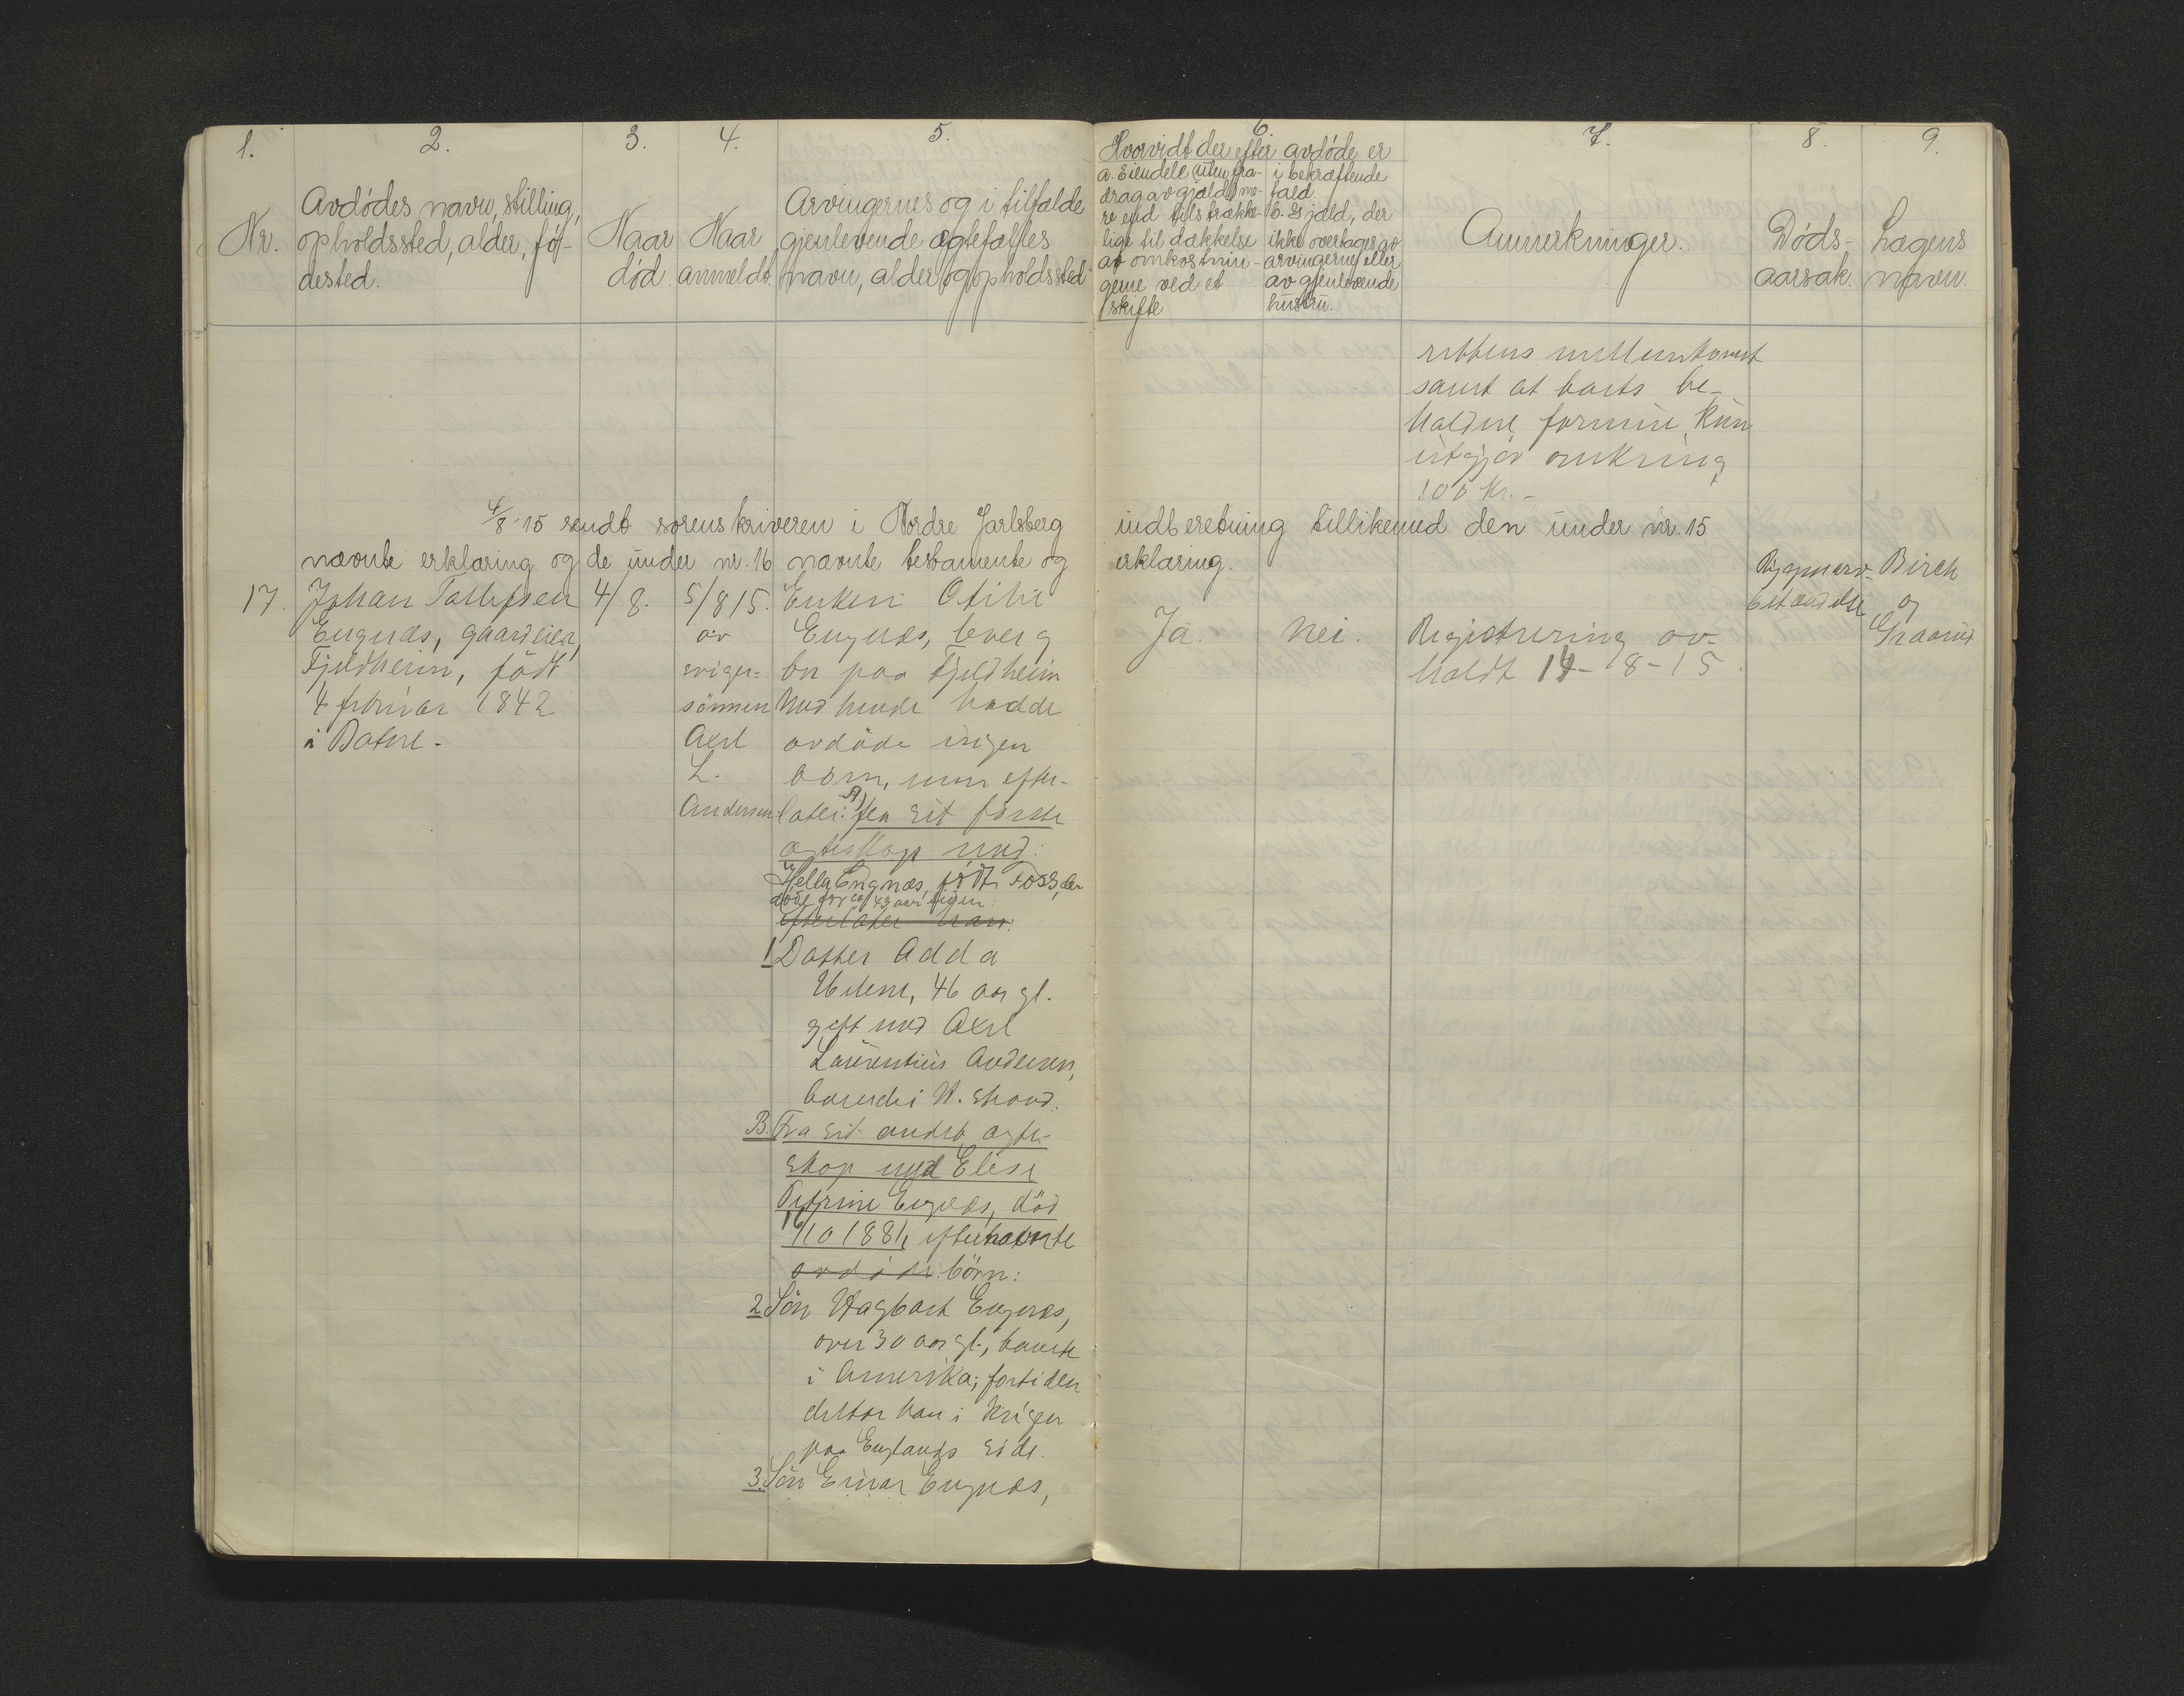 1.
2.
3.
4.
5.
6.
7.
8.
9.
Nr.
Avdødes navn, stilling,
opholdssted, alder, fø-
dested.
Naar
død.
Naar
anmeldt.
Arvingernes og i tilfælde
gjenlevende ægtefælles
navn, alder og opholdssted
Hvorvidt der efter avdøde er
a. Eiendele (uten fra-
drag av gjæld) me-
re end tilstrække-
lige til dækkelse
av omkostnin-
gerne ved et
skifte
i bekræftende
fald
b. Gjæld, der
ikke overtages av
arvingerne eller
av gjenlevende
hustru.
Anmerkninger.
Døds-
aarsak.
Lægens
navn.
rettens mellemkomst
samt at boets be-
holdne formue kun
utgjør omkring
100 kr. -
4/8-15 sendt sorenskriveren i Nordre Jarlsberg indberetning tillikemed den under nr. 15
nævnte erklæring og de under nr. 16 nævnte testamente og erklæring.
17.
Johan Tollefsen
Engnæs, gaardeier,
Fjeldheim, født
4 februar 1842
i Botne.
4/8.
5/8 15.
av
sviger-
sønnen
Axel
L.
Andersen
Enken Otilie
Engnæs, lever og
bor paa Fjeldheim
Med hende hadde
avdøde ingen
børn, men efter-
later: A) fra sit første
egteskap med:
Helle Engnæs, født
døde for ca 43 aar siden
efterlater han:
1 Datter Adda
Helene, 46 aar gl.
gift med Axel
Laurentius Andersen,
boende i H. strand.
B. Fra sit andet egte-
skap med Elise
Petrine Engnæs, død
16/10 1881, efternævnte
børn:
2 Søn Hagbart Engnæs,
over 30 aar gl., boende
i Amerika; fortiden
deltar han i krigen
paa Englands side.
3. Søn Einar Engnæs,
Ja.
Nei.
Registrering av-
holdt 14-8-15.
Birch
og
Graarud